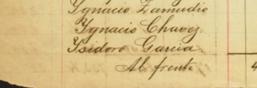 Ygnacio Zamudio
Ygnacio Chavez
Isidoro Garcia
Al frente
4